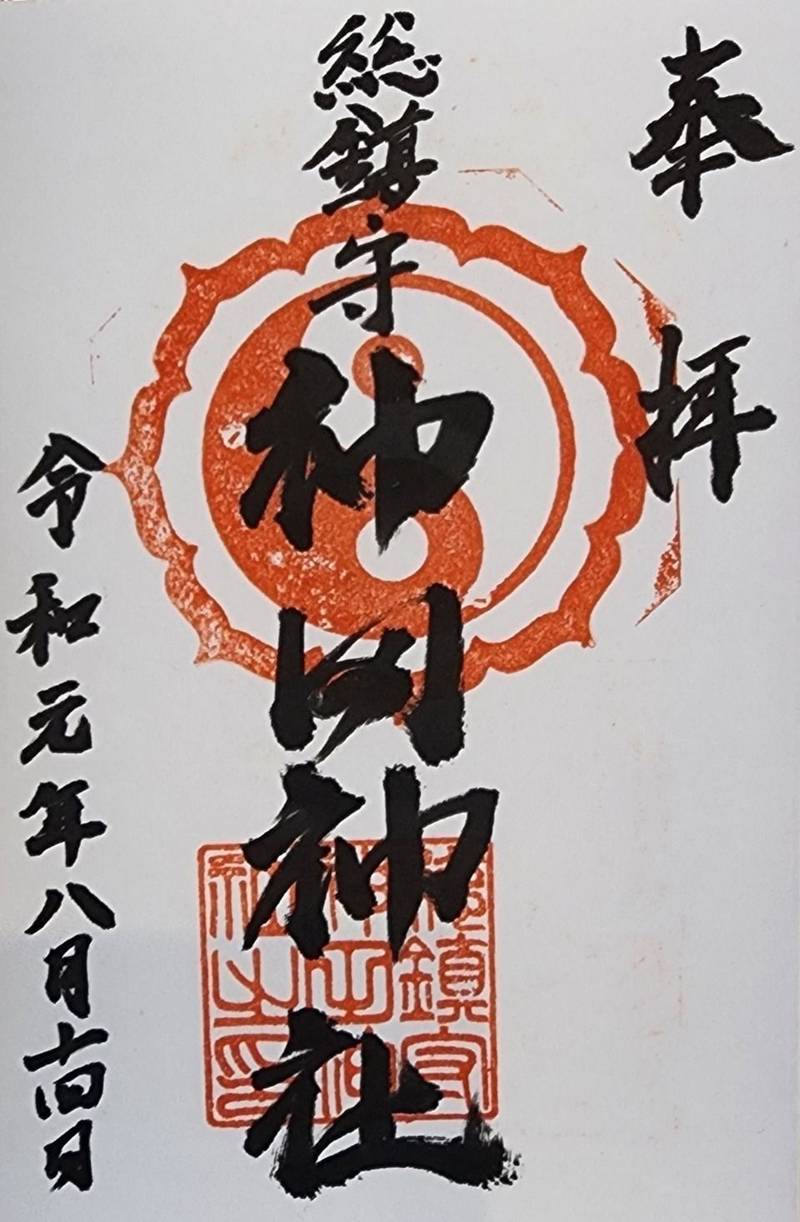 奉拝
総鎮守
神 神社
令和元年八月十四日
総鎮守
社之印